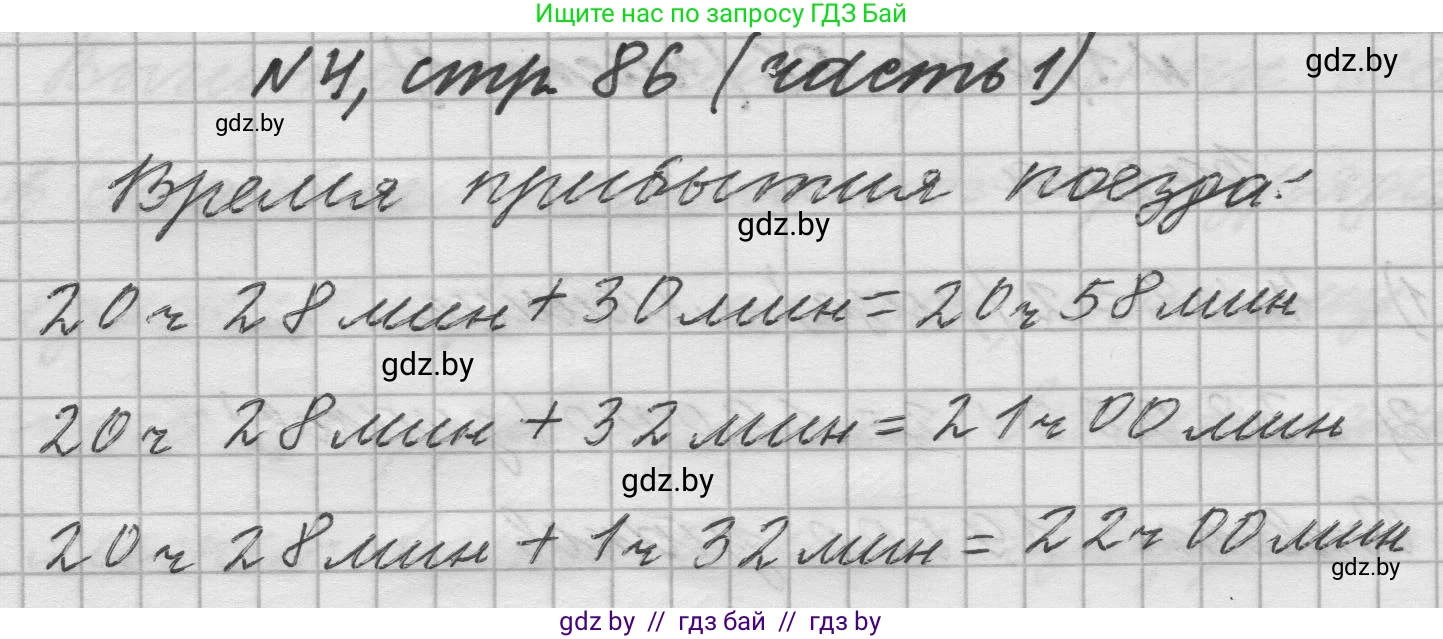 Ищите нас по запросу ГДЗ Бай
№4, стр. 86 (часть 1)
gdz.by
gdz.by
Время прибытия поезда:
gdz.by
20 ч 28 мин + 30 мин = 20 ч 58 мин
gdz.by
20 ч 28 мин + 32 мин = 21 ч 00 мин
gdz.by
20 ч 28 мин + 1 ч 32 мин = 22 ч 00 мин
gdz.by
gdz.by // гдз бай // гдз by